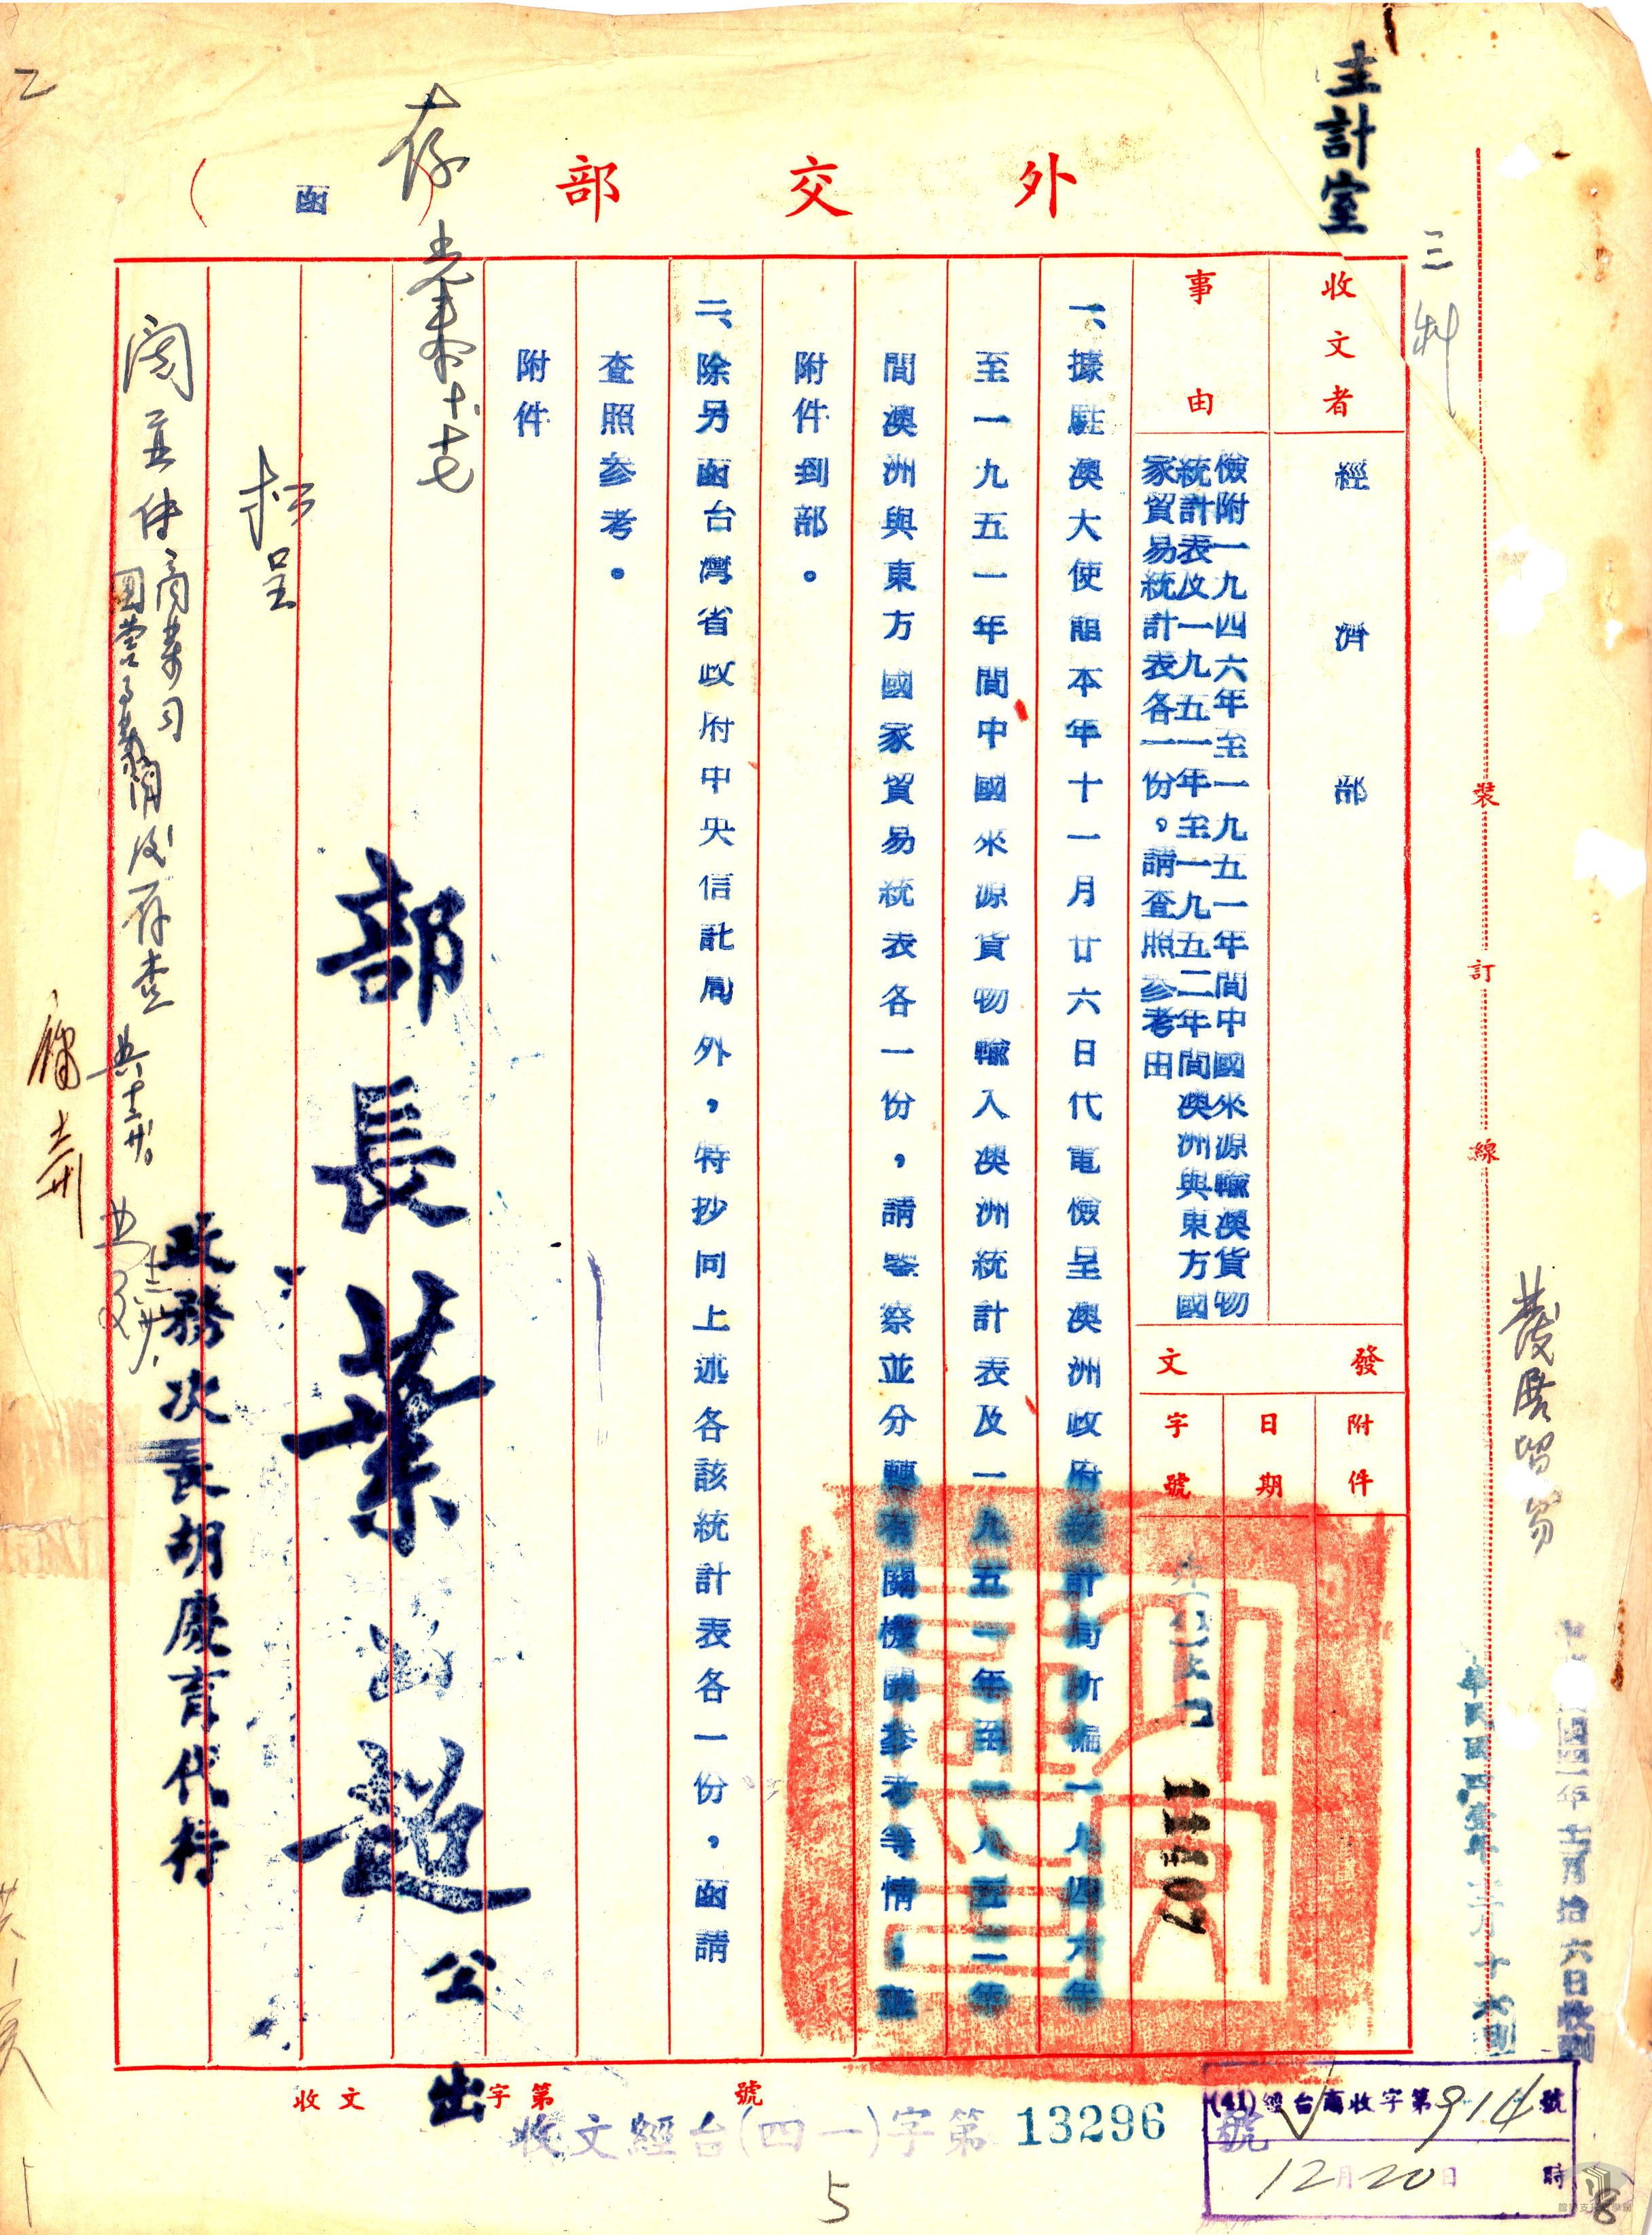 主計室
三科
外交部（函）
收文者
經濟部
事由
檢附一九四六年至一九五一年間中國來源輸澳貨物
統計表及一九五一年至一九五二年間澳洲與東方國
家貿易統計表各一份，請查照參考由
發文
附件
日期
字號
11407
一、據駐澳大使館本年十一月廿六日代電檢呈澳洲政府統計局所編一九四六年
至一九五一年間中國來源貨物輸入澳洲統計表及一九五一年至一九五二年
間澳洲與東方國家貿易統表各一份，請鑒察並分轉有關機關參考等情，並
附件到部。
二、除另函台灣省政府中央信託局外，特抄同上述各該統計表各一份，函請
查照參考。
附件
存
部長葉公超公出
政務次長胡慶育代行
呈
裝訂線
收文字第號
收文經台(四一)字第13296號
(41)經台商收字第914號
12月20日時
5
8